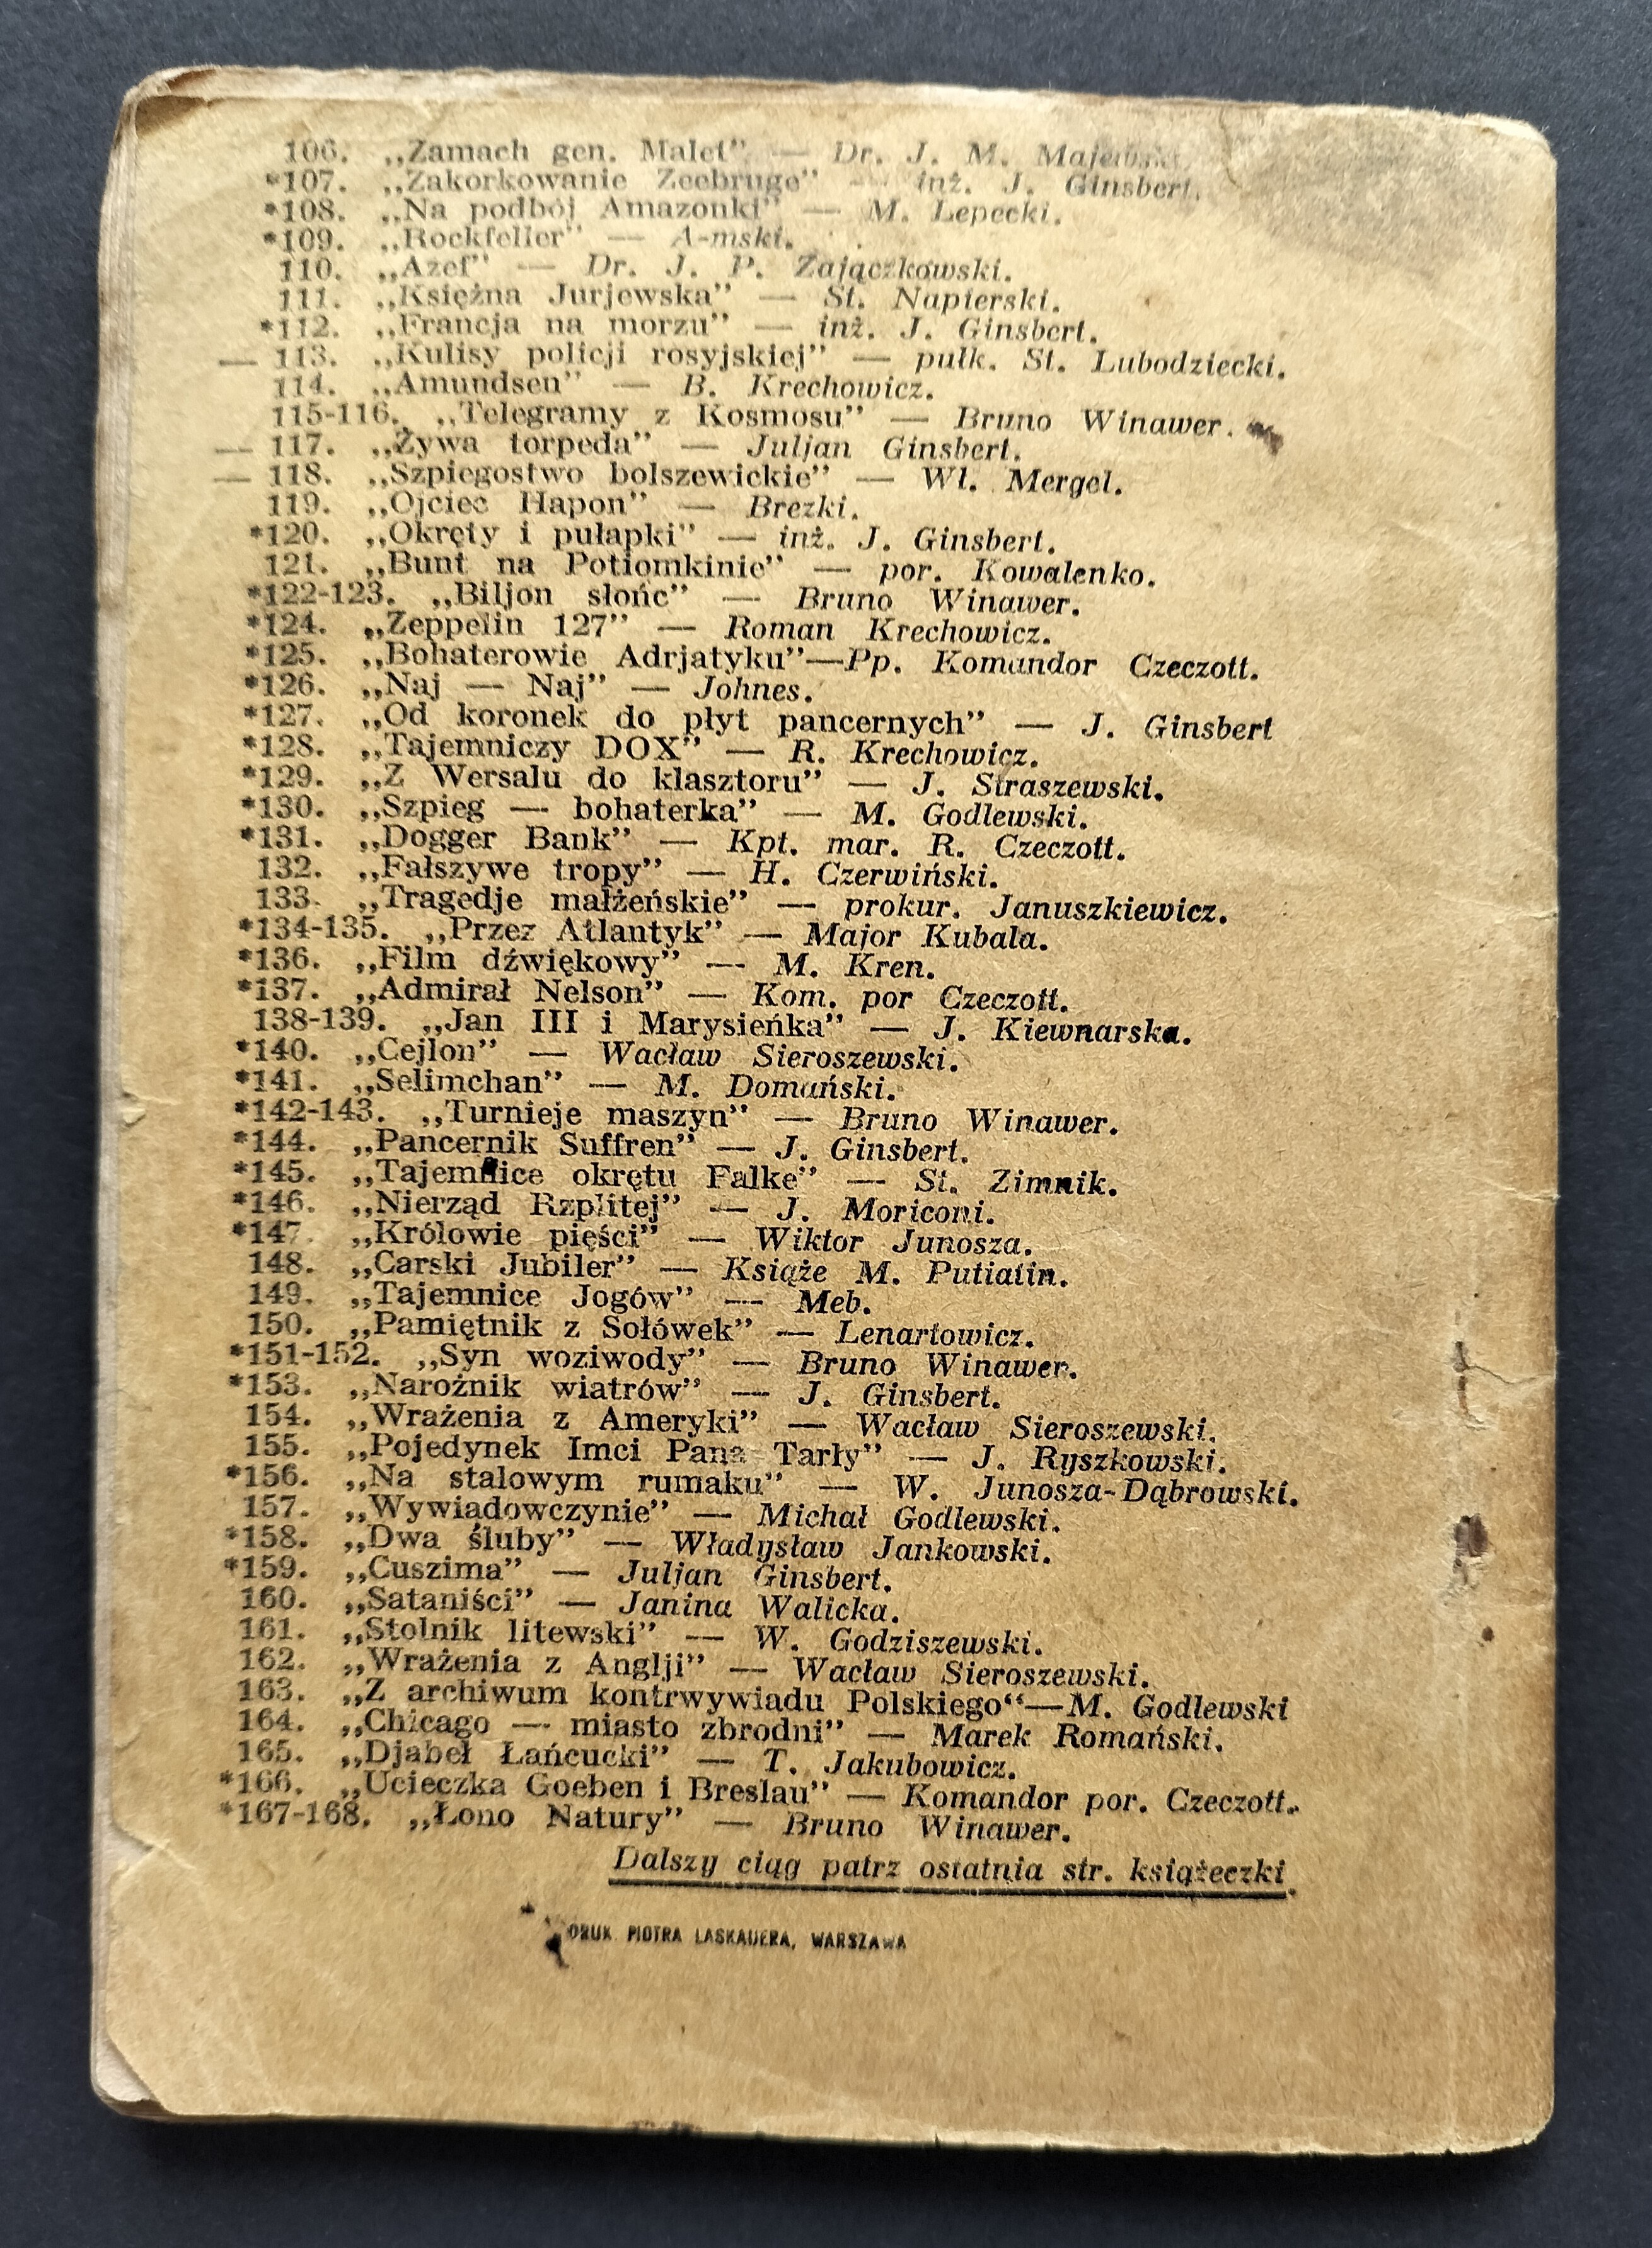 106. „Zamach gen. Malet” — Dr. J. M. Majewski.
*107. „Zakorkowanie Zeebruge” — inż. J. Ginsbert.
*108. „Na podbój Amazonki” — M. Lepecki.
*109. „Rockfeller” — A-mski.
110. „Azef” — Dr. J. P. Zajączkowski.
111. „Księżna Jurjewska” — St. Napierski.
*112. „Francja na morzu” — inż. J. Ginsbert.
— 113. „Kulisy policji rosyjskiej” — pułk. St. Lubodziecki.
114. „Amundsen” — B. Krechowicz.
115-116. „Telegramy z Kosmosu” — Bruno Winawer.
— 117. „Żywa torpeda” — Juljan Ginsbert.
— 118. „Szpiegostwo bolszewickie” — Wł. Mergel.
119. „Ojciec Hapon” — Brezki.
*120. „Okręty i pułapki” — inż. J. Ginsbert.
121. „Bunt na Potiomkinie” — por. Kowalenko.
*122-123. „Biljon słońc” — Bruno Winawer.
*124. „Zeppelin 127” — Roman Krechowicz.
*125. „Bohaterowie Adrjatyku”—Pp. Komandor Czeczott.
*126. „Naj — Naj” — Johnes.
*127. „Od koronek do płyt pancernych” — J. Ginsbert
*128. „Tajemniczy DOX” — R. Krechowicz.
*129. „Z Wersalu do klasztoru” — J. Straszewski.
*130. „Szpieg — bohaterka” — M. Godlewski.
*131. „Dogger Bank” — Kpt. mar. R. Czeczott.
132. „Fałszywe tropy” — H. Czerwiński.
133. „Tragedje małżeńskie” — prokur. Januszkiewicz.
*134-135. „Przez Atlantyk” — Major Kubala.
*136. „Film dźwiękowy” — M. Kren.
*137. „Admirał Nelson” — Kom. por Czeczott.
138-139. „Jan III i Marysieńka” — J. Kiewnarska.
*140. „Cejlon” — Wacław Sieroszewski.
*141. „Selimchan” — M. Domański.
*142-143. „Turnieje maszyn” — Bruno Winawer.
*144. „Pancernik Suffren” — J. Ginsbert.
*145. „Tajemnice okrętu Falke” — St. Zimnik.
*146. „Nierząd Rzplitej” — J. Moriconi.
*147 „Królowie pięści” — Wiktor Junosza.
148. „Carski Jubiler” — Książe M. Putiatin.
149. „Tajemnice Jogów” — Meb.
150. „Pamiętnik z Sołówek” — Lenartowicz.
*151-152. „Syn woziwody” — Bruno Winawer.
*153. „Narożnik wiatrów” — J. Ginsbert.
154. „Wrażenia z Ameryki” — Wacław Sieroszewski.
155. „Pojedynek Imci Pana Tarły” — J. Ryszkowski.
*156. „Na stalowym rumaku” — W. Junosza-Dąbrowski.
157. „Wywiadowczynie” — Michał Godlewski.
*158. „Dwa śluby” — Władysław Jankowski.
*159. „Cuszima” — Juljan Ginsbert.
160. „Sataniści” — Janina Walicka.
161. „Stolnik litewski” — W. Godziszewski.
162. „Wrażenia z Anglji” — Wacław Sieroszewski.
163. „Z archiwum kontrwywiadu Polskiego“—M. Godlewski
164. „Chicago — miasto zbrodni” — Marek Romański.
165. „Djabeł Łańcucki” — T. Jakubowicz.
*166. „Ucieczka Goeben i Breslau” — Komandor por. Czeczott.
*167-168. „Łono Natury” — Bruno Winawer.
Dalszy ciąg patrz ostatnia str. książeczki.
DRUK PIOTRA LASKAUERA, WARSZAWA